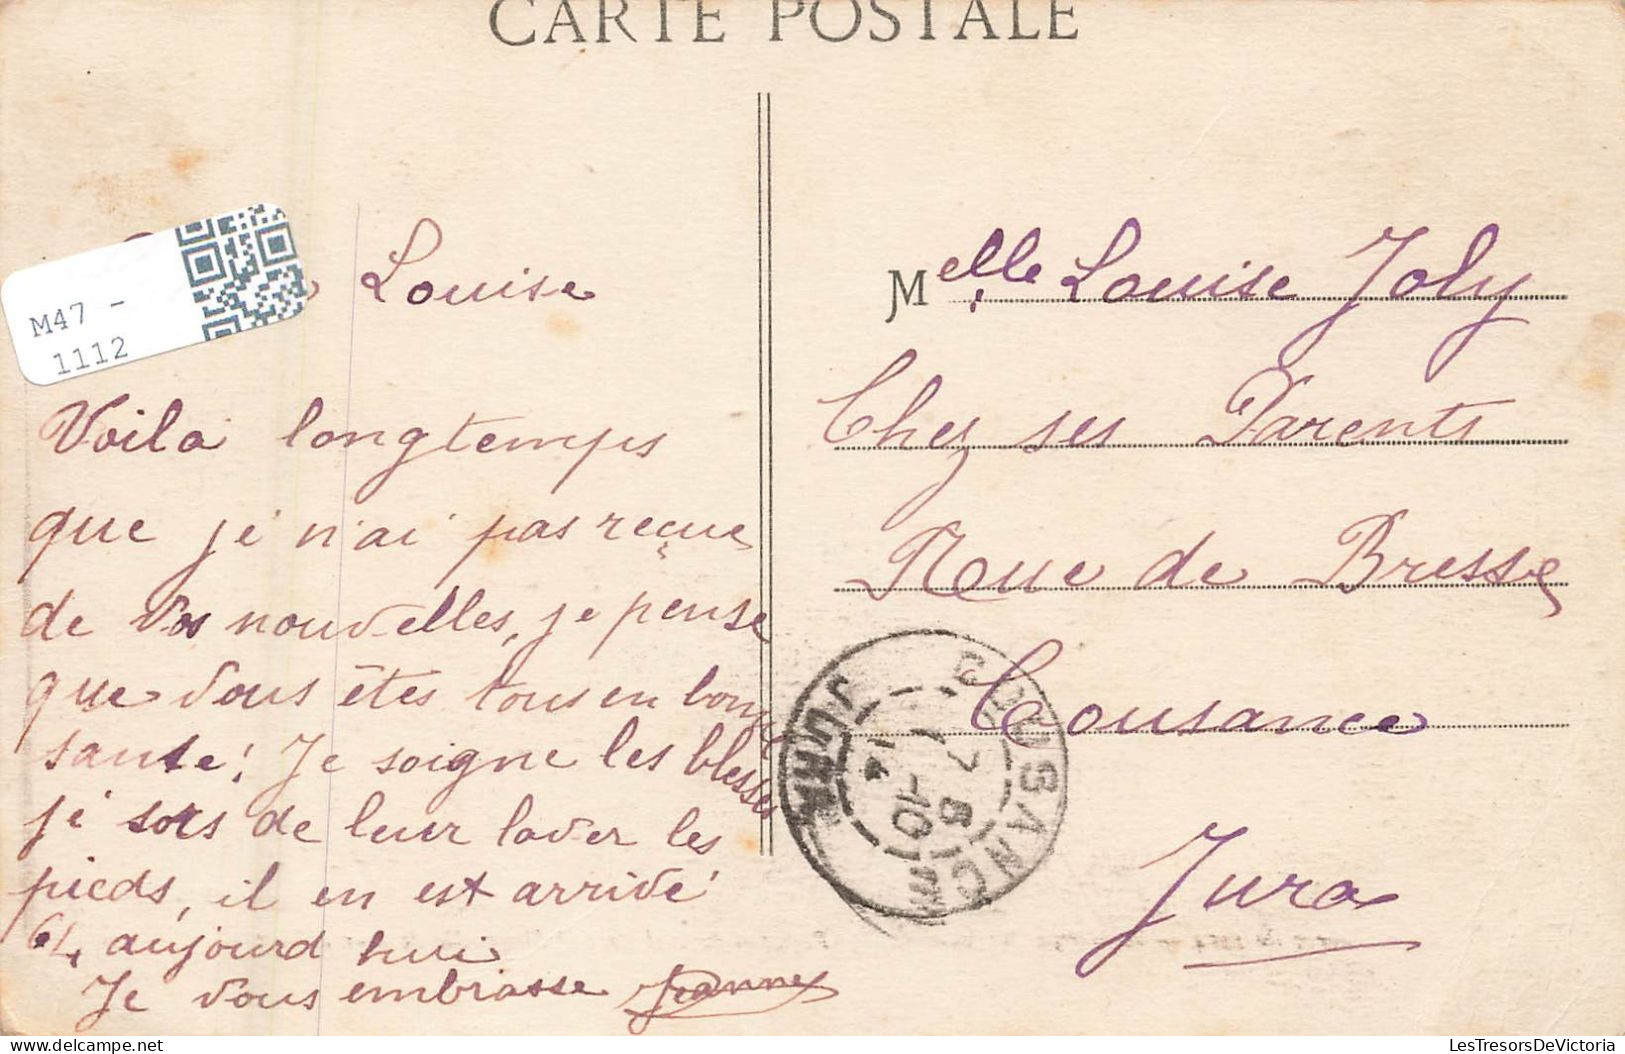 CARTE POSTALE
M47 -
1112
Louise
Voila longtemps
que je n'ai pas reçue
de vos nouvelles, je pense
que vous êtes tous en bonne
sante! Je soigne les blesses
je sors de leur laver les
pieds, il en est arrivé
64 aujourd hui
Je vous embrasse Jeanne
Melle Louise Joly
Chez ses Parents
Rue de Bresse
Cousance
Jura
COUSANCE
JURA
LesTresorsDeVictoria